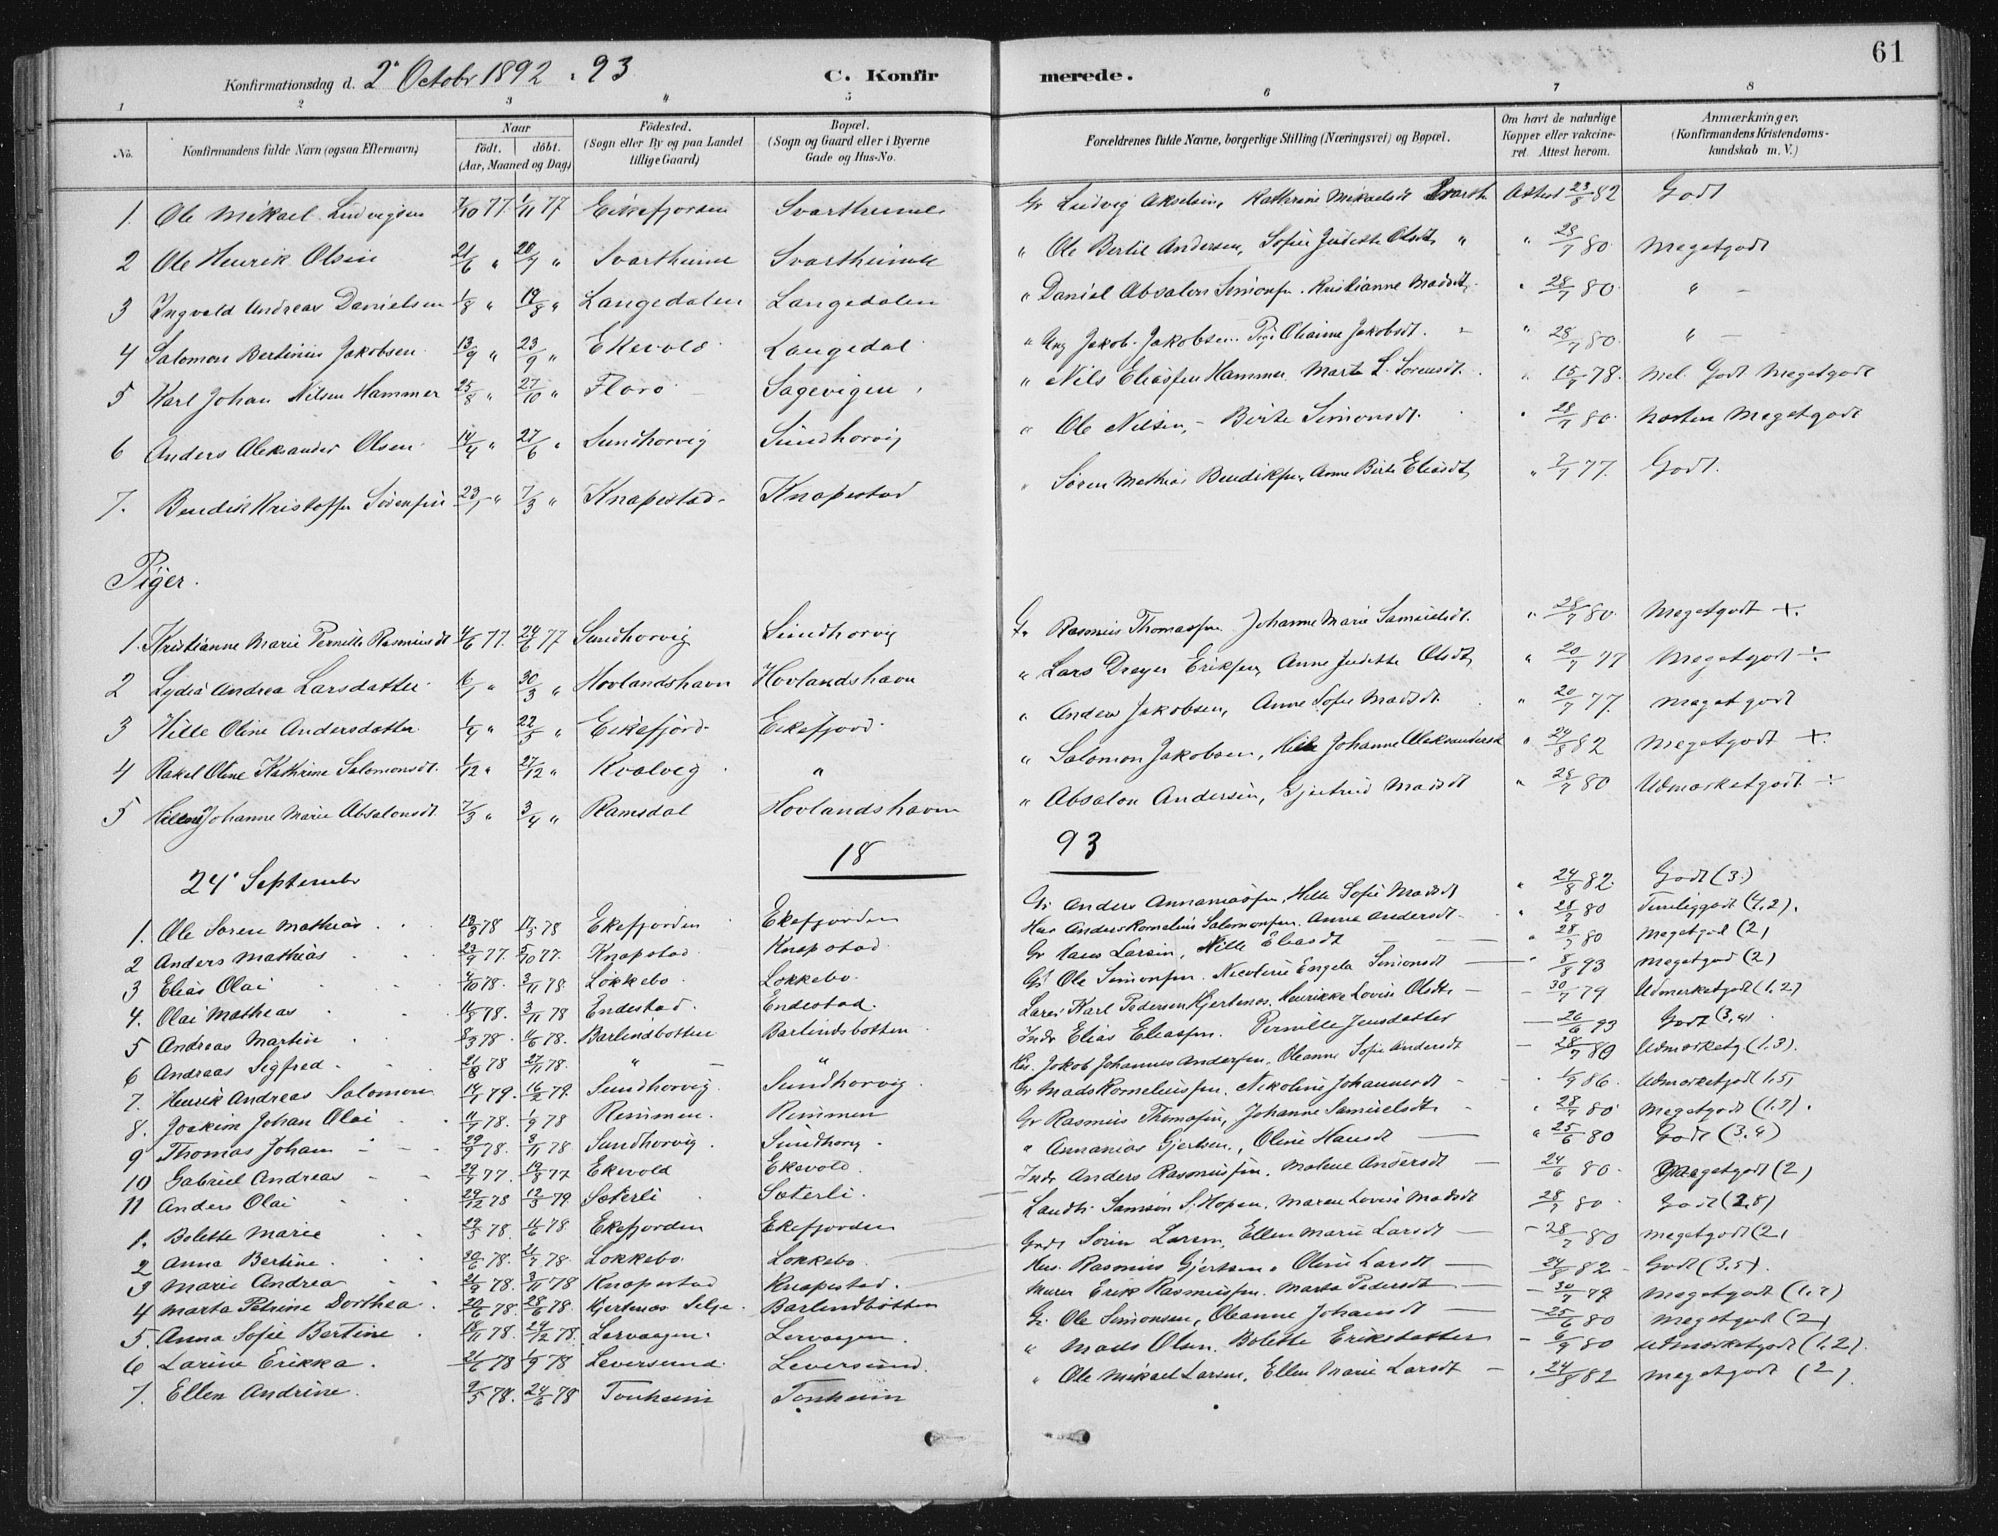 61
Konfirmationsdag d. 2' Octobr 1892 . 93 C. Konfirmerede.
1 2 3 4 5 6 7 8
No. Konfirmandens fulde Navn (ogsaa Efternavn) Naar født. døbt. (Aar, Maaned og Dag) Fødested. (Sogn eller By og paa Landet tillige Gaard) Bopæl. (Sogn og Gaard eller i Byerne Gade og Hus-No. Forældrenes fulde Navne, borgerlige Stilling (Næringsvei) og Bopæl. Om havt de naturlige Kopper eller vakcineret. Attest herom. Anmærkninger. (Konfirmandens Kristendomskundskab m. V.)
1. Ole Mikael Ludvigsen 7/10 77. 1/11 77 Eikefjorden Svarthumle Gr Ludvig Akselsen, Kathrine Mikaelsdt Attest 23/8 82 Godt
2 Ole Henrik Olsen 21/6 " 20/7 " Svarthumle Svarthumle " Ole Bertil Andersen, Sofie Judithe Olsdt " " 28/7 80 Megetgodt
3 Ingvald Andreas Danielsen 1/8 " 19/8 " Langedalen Langedalen " Daniel Absalon Simonsen. Kristianne Madsdt. " 28/7 80 " -
4 Salomon Bertinius Jakobsen 13/9 " 23/9 " Ekevold Langedal " Ung Jakob Jakobsen. Pige Oleanne Jakobsdt. " 28/7 80. " -
5 Karl Johan Nilsen Hammer 25/8 " 27/10 " Florø Sagevigen " Nils Eliassen Hammer Marte L. Sørensdt. " 15/7 78. Mel. Godt Megetgodt
6 Anders Aleksander Olsen 14/4 " 27/6 " Sundhorvig Sundhorvig " Ole Nilsen, - Berte Simonsdt. " 28/7 80. Næsten Megetgodt
7. Bendik Kristoffer Sørensen 23/1 " 7/3 " Knapestad Knapestad " Søren Mathias Bendiksen, Anne Berte Eliasdt " 7/7 77. Godt.
Piger.
1. Kristianne Marie Pernille Rasmusdt 4/6 77. 24/6 77 Sundhorvig Sundhorvig Gr Rasmus Thomassen Johanne Marie Samuelsdt. " 28/7 80. Megetgodt +.
2 Lydia Andrea Larsdatter 6/1 " 30/3 " Hovlandshavn Hovlandshavn " Lars Dreyer Eriksen, Anne Judithe Olsdt " 20/7 77 Megetgodt ÷
3 Hille Oline Andersdatter 1/4 " 22/5 " Eikefjord Eikefjord " Anders Jakobsen, Anne Sofie Madsdt. " 20/7 77. Megetgodt
4 Rakel Oline Kathrine Salomonsdt. 1/12 " 27/12 " Kvalvig " " Salomon Jakobsen, Hille Johanne Aleksandersdt " 24/8 82 Megetgodt +.
5 Johanne Marie Absalonsdt. 7/3 " 3/4 " Ramsdal Hovlandshavn " Absalon Andersen, Gjertrud Madsdt " 28/7 80 Udmærketgodt ÷
18 93
24' Septembr
1. Ole Søren Mathias 13/3 78 17/5 78 Ekefjorden Ekefjorden Gr Anders Annaniassen, Hille Sofie Madsdt " 24/8 82. Godt (3.)
2 Anders Mathias 23/9 77. 5/10 77. Knapstad Knapstad Hus Anders Kornelius Salomonsen. Anna Andersdt. " 28/7 80 Temeliggodt (4,2).
3 Elias Olai 4/10 78. 3/11 78 Løkkebø Løkkebø. Gr Hans Larsen, Nille Eliasdt " 28/7 80 Megetgodt (2)
4. Olai Mathias 11/8 78. 3/11 78 Endestad. Endestad. Gr Ole Simonsen. Nicoline Engela Simonsdt " 8/8 93 Megetgod (2)
5 Andreas Martin 8/3 78. 11/6 78. Barlindbotten Barlindsbotten Lærer Karl Pedersen Hjertenæs. Henrikke Lovise Olsdt. - 30/7 79 Udmerketgodt (1,2)
6 Andreas Segfred 21/8 78 27/11 78. " - " Indr Elias Eliassen. Pernille Jensdatter - 26/6 93 Godt (3,4).
7. Henrik Andreas Salomon 14/1 79. 16/2 79. Sundhorvig. Sundhorvig. Hus. Jakob Johannes Andersen. Oleanne Sofie Andersdt - 28/7 80 Udmærketg (1,3).
8. Joakim Johan Olai 11/7 78. 1/9 78 Remmen. Remmen Gr Mads Korneliussen. Nikoline Johannesdt - 1/9 86. Udmærketgodt 1,5
9 Thomas Johan 29/9 78. 3/11 78 Sundhorvig. Sundhorvig. Gr Rasmus Thomasen, Johanne Samuelsdt. " 28/7 80 Megetgodt (1,7).
10 Gabriel Andreas 29/7 77. 19/8 77 Ekevold Ekevold " Annanias Gjertsen, Oline Hansdt " 25/6 80 Godt (3,4)
11 Anders Olai 29/12 78 12/3 79. Sæterli Sæterli. Indr Anders Rasmussen. Malene Andersdt 24/6 80. Megetgodt (2)
1. Bolette Marie 29/3 78. 11/6 78 Ekefjorden Ekefjorden Landh. Samson S. Hopen. Maren Lovise Madsdt 28/7 80 Godt (2,8)
2 Anna Bertine 30/6 78. 21/7 78. Løkkebø. Løkkebø. Gr Søren Larsen, Ellen Marie Larsdt - 28/7 80 Megetgodt (2)
3 Marie Andrea 21/9 78. 3/11 78 Knapestad Knapestad. Hus. Rasmus Gjertsen. Oline Larsdt 24/8 82 - Godt (3.5).
4 Marta Petrine Dorthea 20/6 78. 28/6 78. Hjertenæs Selje. Barlindbotten Murer Erik Rasmussen. Marta Pedersdt - 30/7 79 Megetgodt (1,7)
5. Anna Sofie Bertine 18/11 78. 29/12 78. Lervaagen. Lervaagen. Gr. Ole Simonsen, Oleanne Johansdt - 25/6 80 Megetgod (2)
6 Larine Erikka 21/6 78 1/9 78 Leversund. Leversund. " Mads Olsen. Bolette Eriksdatter - 6/9 80 Udmærketgodt (1,2).
7. Ellen Andrine 9/5 78. 24/6 78 Tonheim Tonheim " Ole Mikael Larsen, Ellen Marie Larsdt - 24/8 82 Megetgodt (2)